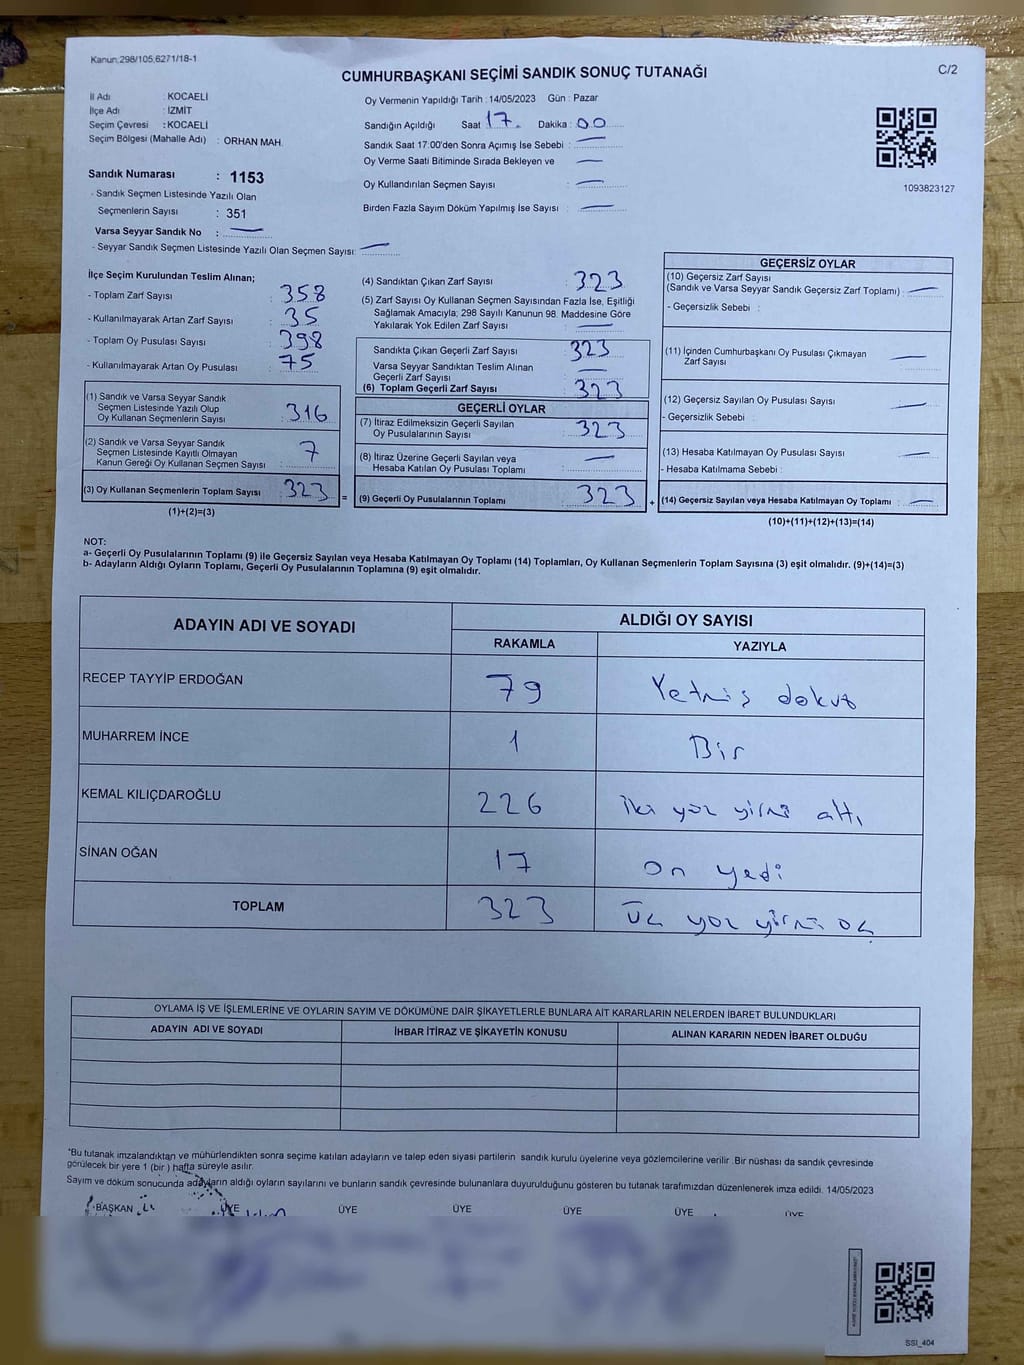 Kanun:298/105,6271/18-1
C/2
CUMHURBAŞKANI SEÇİMİ SANDIK SONUÇ TUTANAĞI
İl Adı : KOCAELİ
İlçe Adı : İZMİT
Seçim Çevresi : KOCAELİ
Seçim Bölgesi (Mahalle Adı) : ORHAN MAH.
Sandık Numarası : 1153
- Sandık Seçmen Listesinde Yazılı Olan
Seçmenlerin Sayısı : 351
Varsa Seyyar Sandık No : —
- Seyyar Sandık Seçmen Listesinde Yazılı Olan Seçmen Sayısı: —
Oy Vermenin Yapıldığı Tarih : 14/05/2023 Gün : Pazar
Sandığın Açıldığı Saat 17. Dakika : 00
Sandık Saat 17:00'den Sonra Açımış İse Sebebi : —
Oy Verme Saati Bitiminde Sırada Bekleyen ve —
Oy Kullandırılan Seçmen Sayısı : —
Birden Fazla Sayım Döküm Yapılmış İse Sayısı : —
1093823127
İlçe Seçim Kurulundan Teslim Alınan;
- Toplam Zarf Sayısı : 358
- Kullanılmayarak Artan Zarf Sayısı : 35
- Toplam Oy Pusulası Sayısı : 398
- Kullanılmayarak Artan Oy Pusulası : 75
(1) Sandık ve Varsa Seyyar Sandık
Seçmen Listesinde Yazılı Olup
Oy Kullanan Seçmenlerin Sayısı : 316
(2) Sandık ve Varsa Seyyar Sandık
Seçmen Listesinde Kayıtlı Olmayan
Kanun Gereği Oy Kullanan Seçmen Sayısı : 7
(3) Oy Kullanan Seçmenlerin Toplam Sayısı : 323
(1)+(2)=(3)
=
(4) Sandıktan Çıkan Zarf Sayısı : 323
(5) Zarf Sayısı Oy Kullanan Seçmen Sayısından Fazla İse, Eşitliği
Sağlamak Amacıyla; 298 Sayılı Kanunun 98. Maddesine Göre
Yakılarak Yok Edilen Zarf Sayısı : —
Sandıkta Çıkan Geçerli Zarf Sayısı : 323
Varsa Seyyar Sandıktan Teslim Alınan
Geçerli Zarf Sayısı : —
(6) Toplam Geçerli Zarf Sayısı : 323
GEÇERLİ OYLAR
(7) İtiraz Edilmeksizin Geçerli Sayılan
Oy Pusulalarının Sayısı : 323
(8) İtiraz Üzerine Geçerli Sayılan veya
Hesaba Katılan Oy Pusulası Toplamı : —
(9) Geçerli Oy Pusulalarının Toplamı : 323
+
GEÇERSİZ OYLAR
(10) Geçersiz Zarf Sayısı
(Sandık ve Varsa Seyyar Sandık Geçersiz Zarf Toplamı) : —
- Geçersizlik Sebebi :
(11) İçinden Cumhurbaşkanı Oy Pusulası Çıkmayan
Zarf Sayısı : —
(12) Geçersiz Sayılan Oy Pusulası Sayısı : —
- Geçersizlik Sebebi :
(13) Hesaba Katılmayan Oy Pusulası Sayısı : —
- Hesaba Katılmama Sebebi :
(14) Geçersiz Sayılan veya Hesaba Katılmayan Oy Toplamı : —
(10)+(11)+(12)+(13)=(14)
NOT:
a- Geçerli Oy Pusulalarının Toplamı (9) ile Geçersiz Sayılan veya Hesaba Katılmayan Oy Toplamı (14) Toplamları, Oy Kullanan Seçmenlerin Toplam Sayısına (3) eşit olmalıdır. (9)+(14)=(3)
b- Adayların Aldığı Oyların Toplamı, Geçerli Oy Pusulalarının Toplamına (9) eşit olmalıdır.
ADAYIN ADI VE SOYADI ALDIĞI OY SAYISI
RAKAMLA YAZIYLA
RECEP TAYYİP ERDOĞAN 79 Yetmiş dokuz
MUHARREM İNCE 1 Bir
KEMAL KILIÇDAROĞLU 226 iki yüz yirmi altı
SİNAN OĞAN 17 On yedi
TOPLAM 323 Üç yüz yirmi üç
OYLAMA İŞ VE İŞLEMLERİNE VE OYLARIN SAYIM VE DÖKÜMÜNE DAİR ŞİKAYETLERLE BUNLARA AİT KARARLARIN NELERDEN İBARET BULUNDUKLARI
ADAYIN ADI VE SOYADI İHBAR İTİRAZ VE ŞİKAYETİN KONUSU ALINAN KARARIN NEDEN İBARET OLDUĞU
*Bu tutanak imzalandıktan ve mühürlendikten sonra seçime katılan adayların ve talep eden siyasi partilerin sandık kurulu üyelerine veya gözlemcilerine verilir .Bir nüshası da sandık çevresinde
görülecek bir yere 1 (bir ) hafta süreyle asılır.
Sayım ve döküm sonucunda adayların aldığı oyların sayılarını ve bunların sandık çevresinde bulunanlara duyurulduğunu gösteren bu tutanak tarafımızdan düzenlenerek imza edildi. 14/05/2023
BAŞKAN ÜYE ÜYE ÜYE ÜYE ÜYE ÜYE
SSI_404